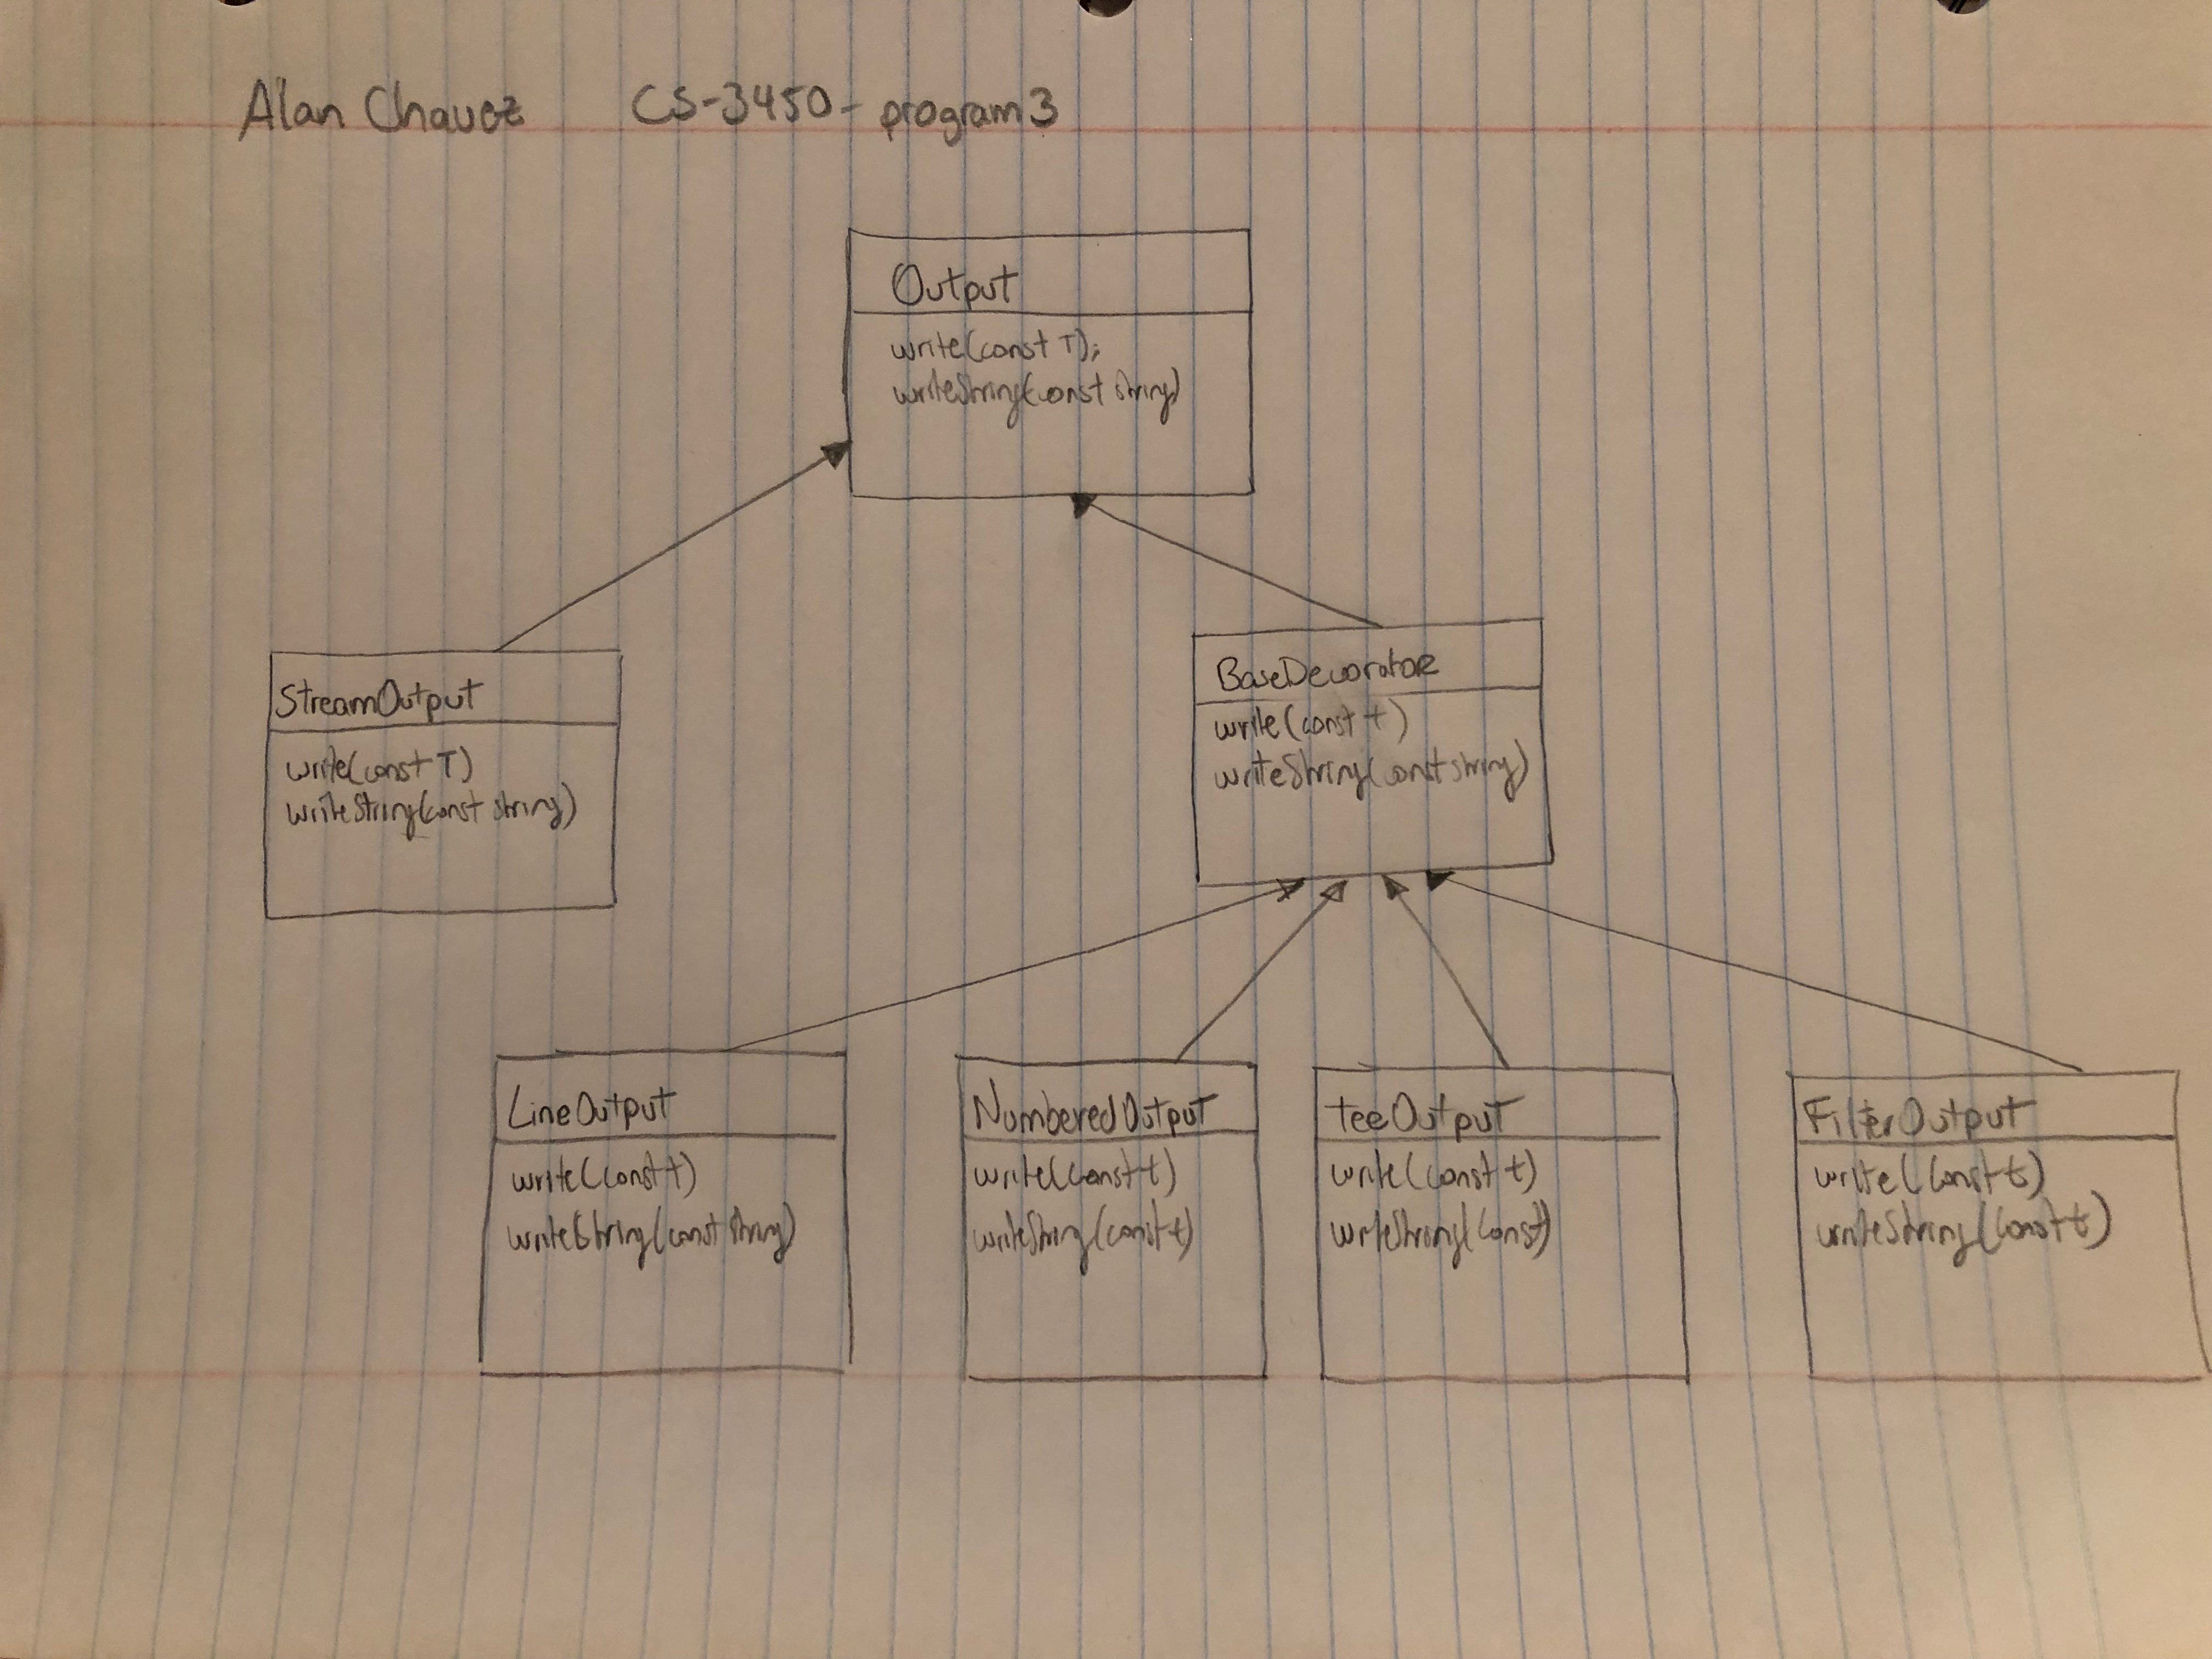 Alan Chavez CS-3450- program3
Output
write(const T);
writeString(const string)
StreamOutput
write(const T)
writeString(const string)
BaseDecorator
write(const t)
writeString(const string)
LineOutput
write(const t)
writeString(const string)
NumberedOutput
write(const t)
writeString(const t)
teeOutput
write(const t)
writeString(const)
FilterOutput
write(const t)
writeString(const t)